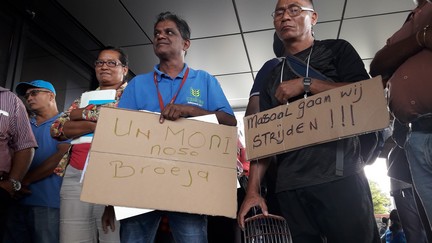 UN MORI
noso
Broeja
Massaal gaan wij
STRIJDEN !!!